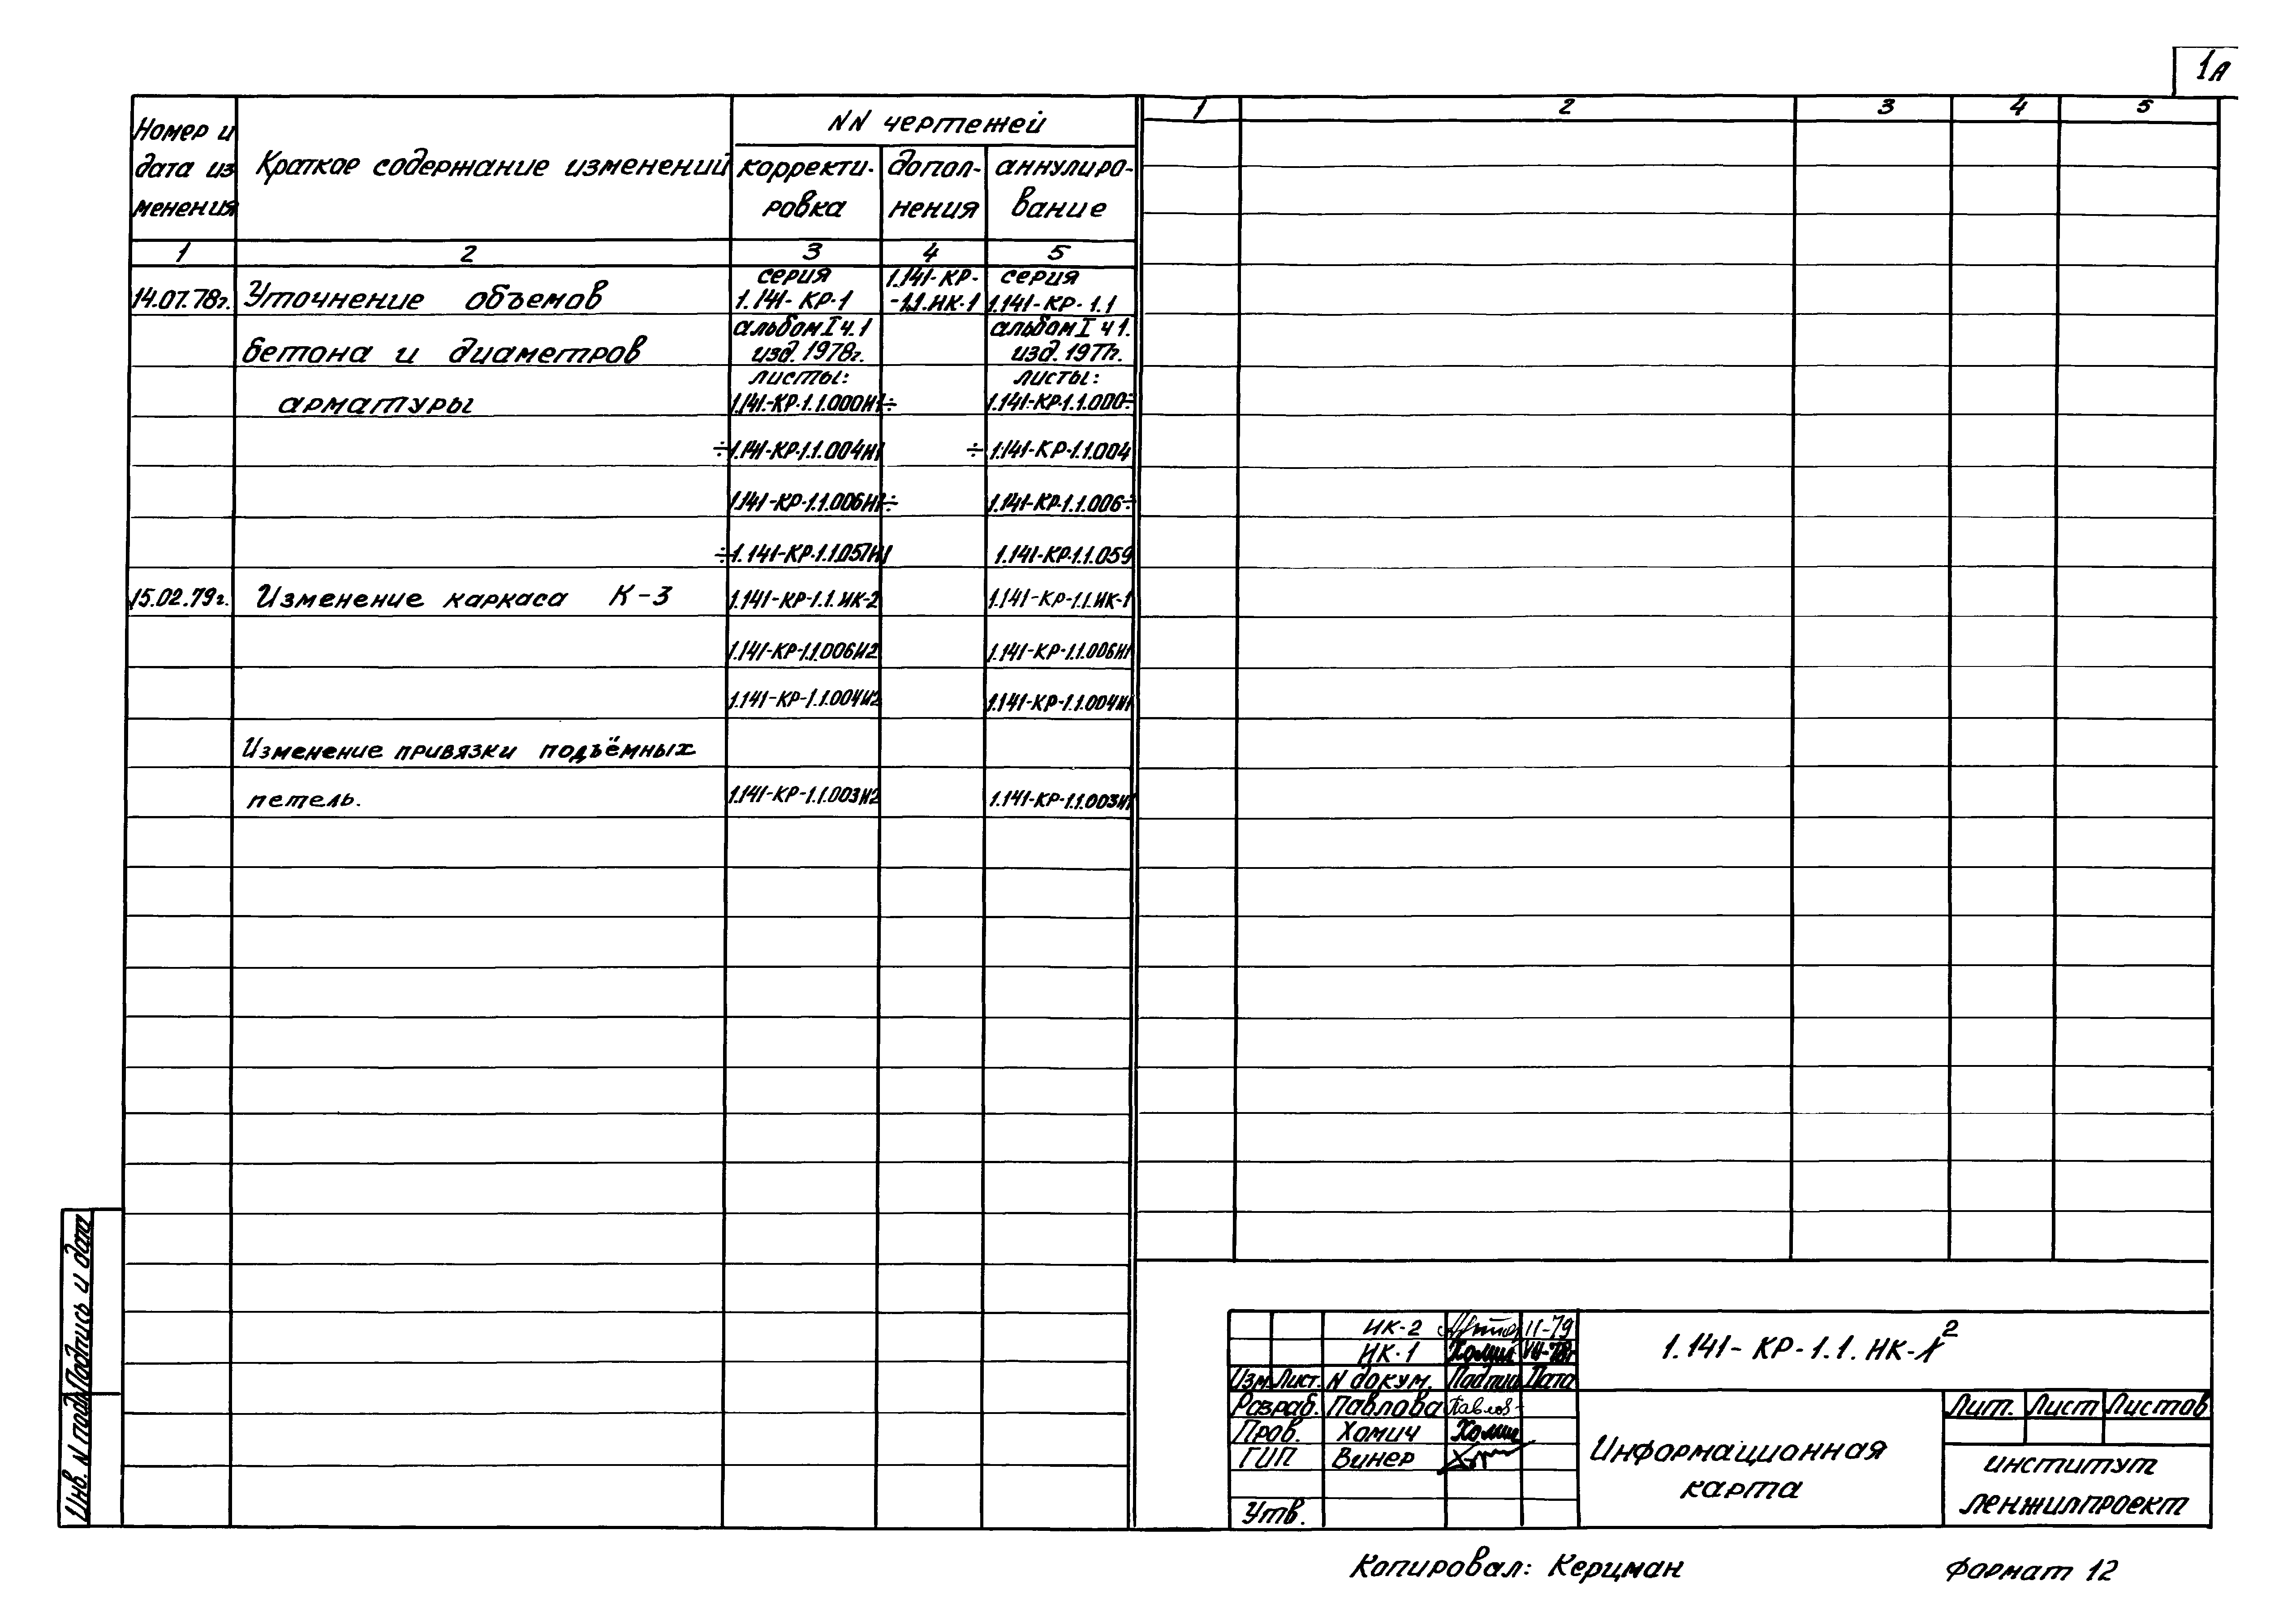 1А
Номер и
дата из
менения
Краткое содержание изменений
NN чертежей
корректи-
ровка
допол-
нения
аннулиро-
вание
1 2 3 4 5
1 2 3 4 5
14.07.78г. Уточнение объемов
бетона и диаметров
арматуры
серия
1.141-КР-1
альбом I ч.1
изд. 1978г.
листы:
1.141-КР-1.1.000И1÷
÷1.141-КР-1.1.004И1
1.141-КР-1.1.006И1÷
÷1.141-КР-1.1.057И1
1.141-КР-
-1.1.ИК-1
серия
1.141-КР-1.1
альбом I ч1.
изд. 1977г.
листы:
1.141-КР-1.1.000÷
÷1.141-КР-1.1.004
1.141-КР-1.1.006÷
1.141-КР-1.1.059
15.02.79г. Изменение каркаса К-3 1.141-КР-1.1.ИК-2 1.141-КР-1.1.ИК-1
1.141-КР-1.1.006И2 1.141-КР-1.1.006И1
1.141-КР-1.1.004И2 1.141-КР-1.1.004И1
Изменение привязки подъёмных
петель. 1.141-КР-1.1.003И2 1.141-КР-1.1.003И1
Подпись и дата
Инв. N подл.
ИК-2 II-79
ИК-1 Хомич VII-78г
Изм. Лист. N докум. Подпис Дата
Разраб. Павлова Павлов
Пров. Хомич Хомич
ГИП Винер
Утв.
1.141-КР-1.1.ИК-1 2
Информационная
карта
Лит. Лист Листов
институт
Ленжилпроект
Копировал: Керцман Формат 12